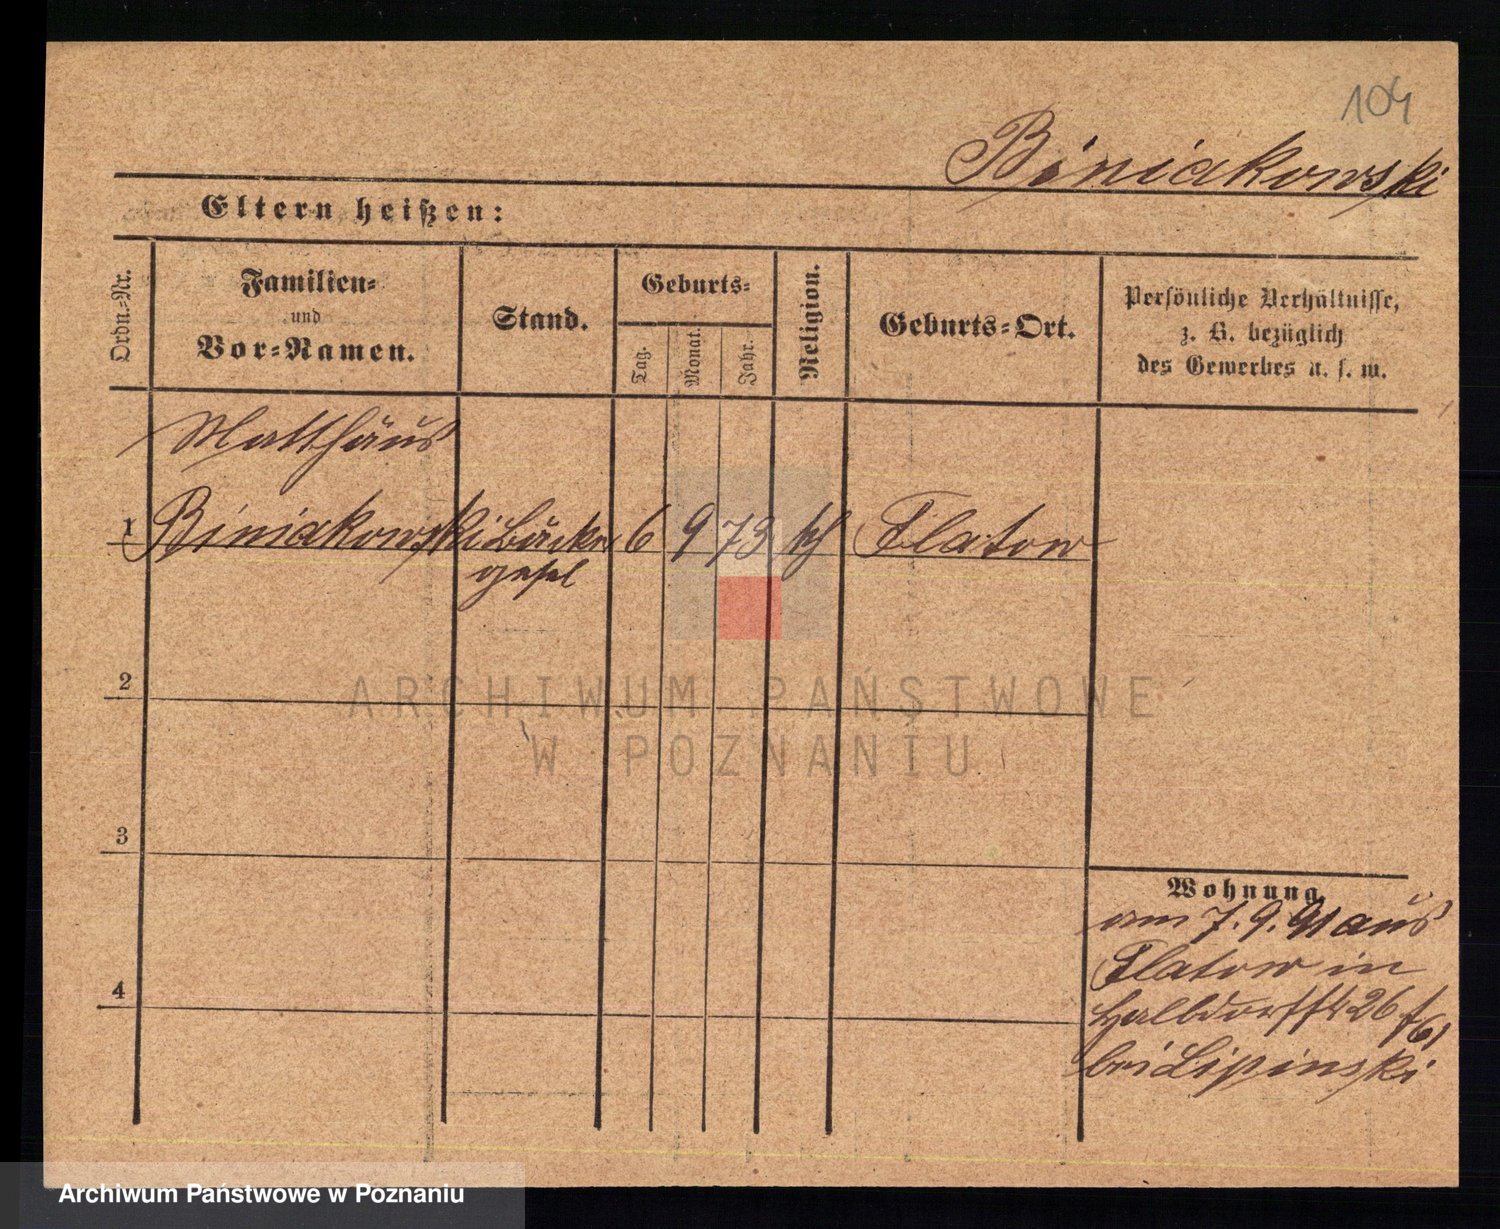 104
Biniakowski
Eltern heißen:
Ordn.-Nr.
Familien-
und
Vor-Namen.
Stand.
Geburts-
Tag.
Monat.
Jahr.
Religion.
Geburts-Ort.
Persönliche Verhältnisse,
z. B. bezüglich
des Gewerbes u. s. w.
Matthäus
1 Biniakowski 6 9 73 kth Flatow
gesel
2
ARCHIWUM PAŃSTWOWE
W POZNANIU
3
4
Wohnung
am 7. 9. 91 aus
Flatow in
Halbdorfstr 26
bei Lipinski
Archiwum Państwowe w Poznaniu